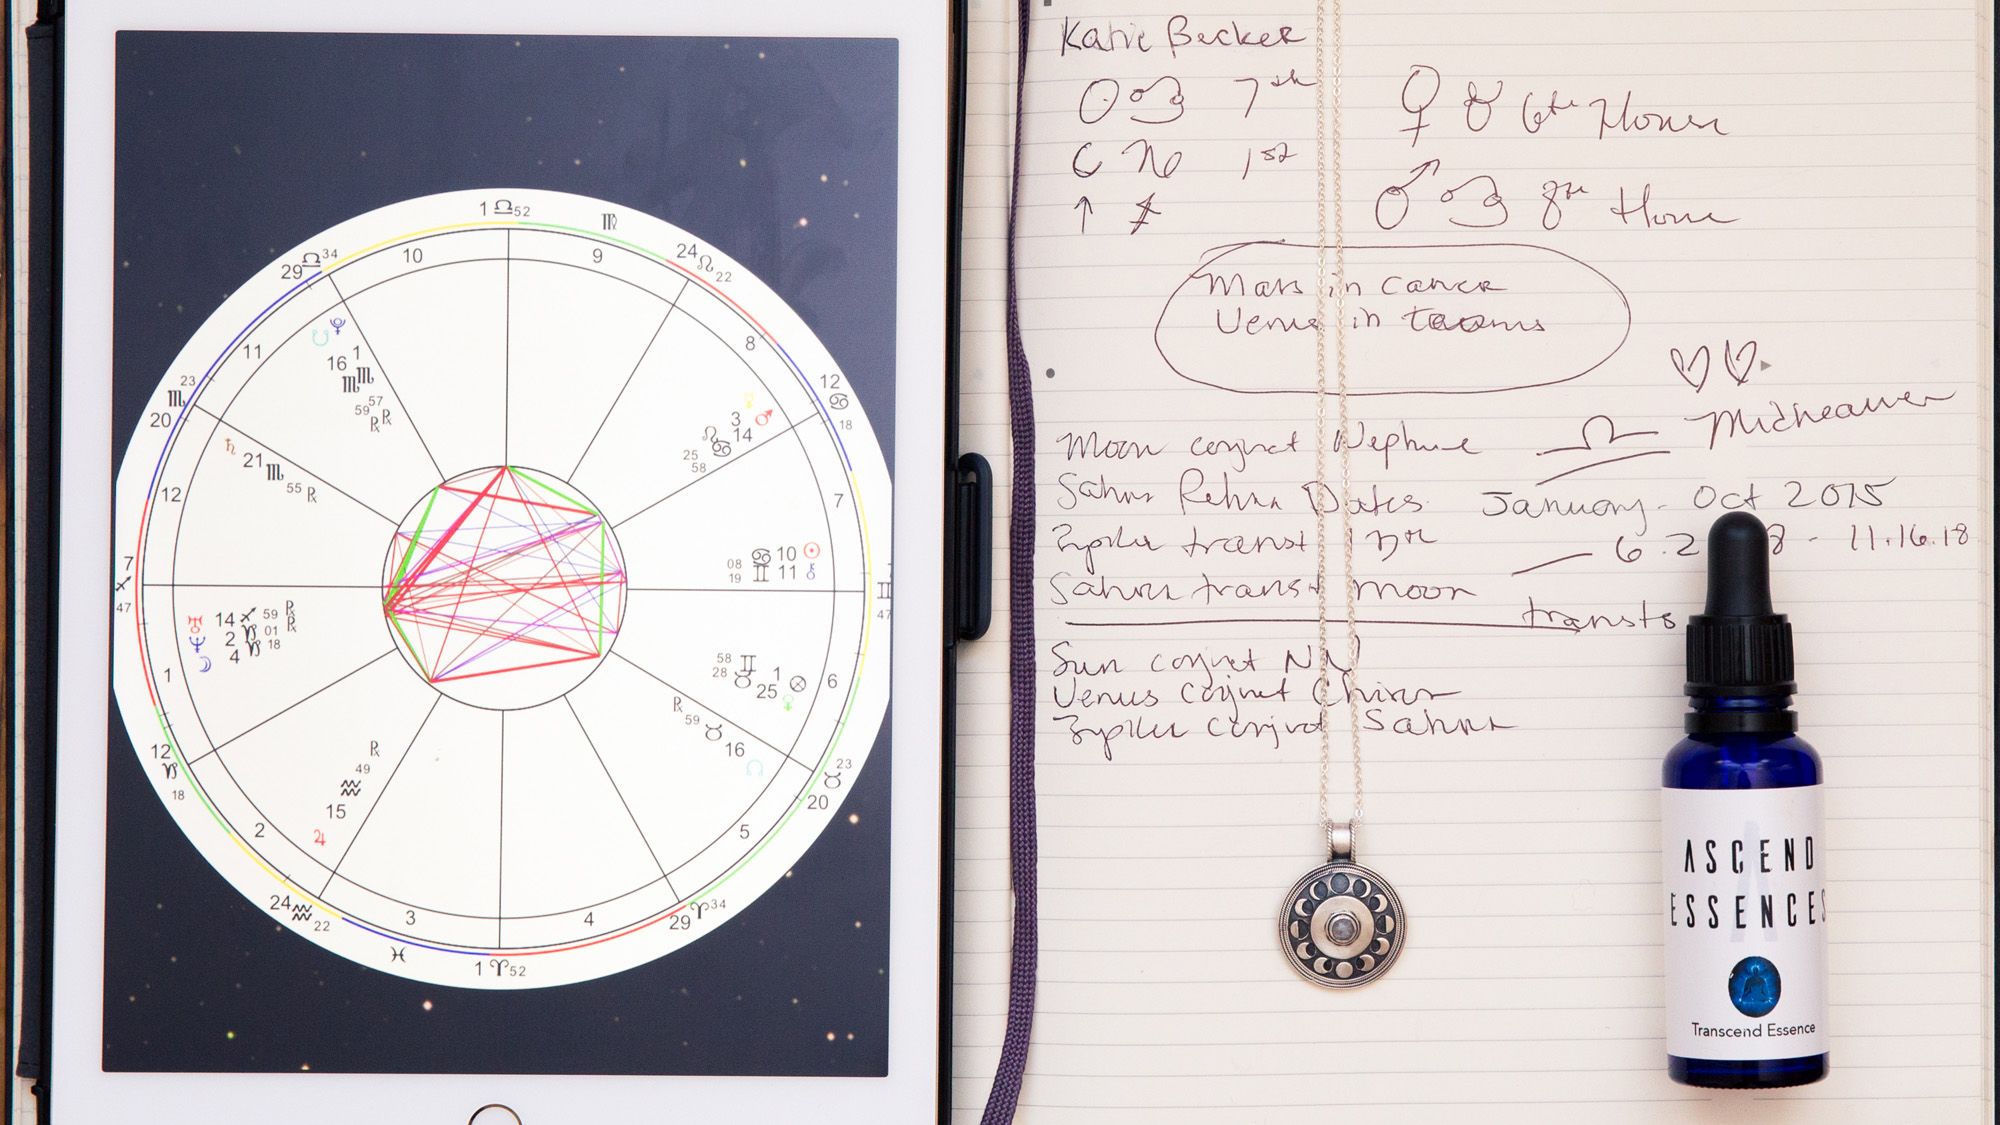 1 ♎ 52
♍
29 ♎ 34
10
9
24 ♌ 22
11
8
♏ 23
20
12 ♋ 18
☋ ♇
16 1
♏ ♏
59 57
℞ ℞
☿
3 ♂
♌ 14
♋
25
58
♄ 21 ♏ 55 ℞
12
7
7
♐
47
08 ♋ 10 ☉
19 ♊ 11 ⚷
♊
47
♅ 14 ♐ 59 ℞
♆ 2 ♑ 01 ℞
☽ 4 ♑ 18
1
58 ♊ 1 ⊗
28 ♉ 25 ♀
6
℞ 59 ♉ 16 ☊
12
♑
18
℞
49
♒
15
♃
♉ 23
20
2
5
24 ♒ 22
3
4
29 ♈ 34
♓
1 ♈ 52
Katie Becker
☉ ♋ 7th
♀ ♉ 6th House
☾ ♑ 1st
↑ ♐
♂ ♋ 8th House
Mars in cancer
Venus in taurus
♡ ♡
Moon conjnct Neptune
♎ Midheaven
Saturn Return Dates January - Oct 2015
transt 12th - 6.2 8 - 11.16.18
Saturn transt moon
transts
Sun conjnct NN
Venus conjnct Chiron
conjnct Saturn
ASCEND
ESSENCES
Transcend Essence